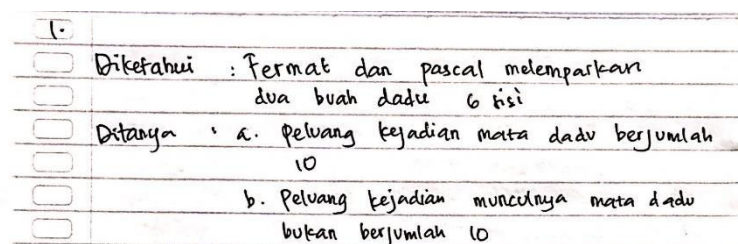 1.
Diketahui : Fermat dan pascal melemparkan
dua buah dadu 6 sisi
Ditanya : a. peluang kejadian mata dadu berjumlah
10
b. Peluang kejadian munculnya mata dadu
bukan berjumlah 10